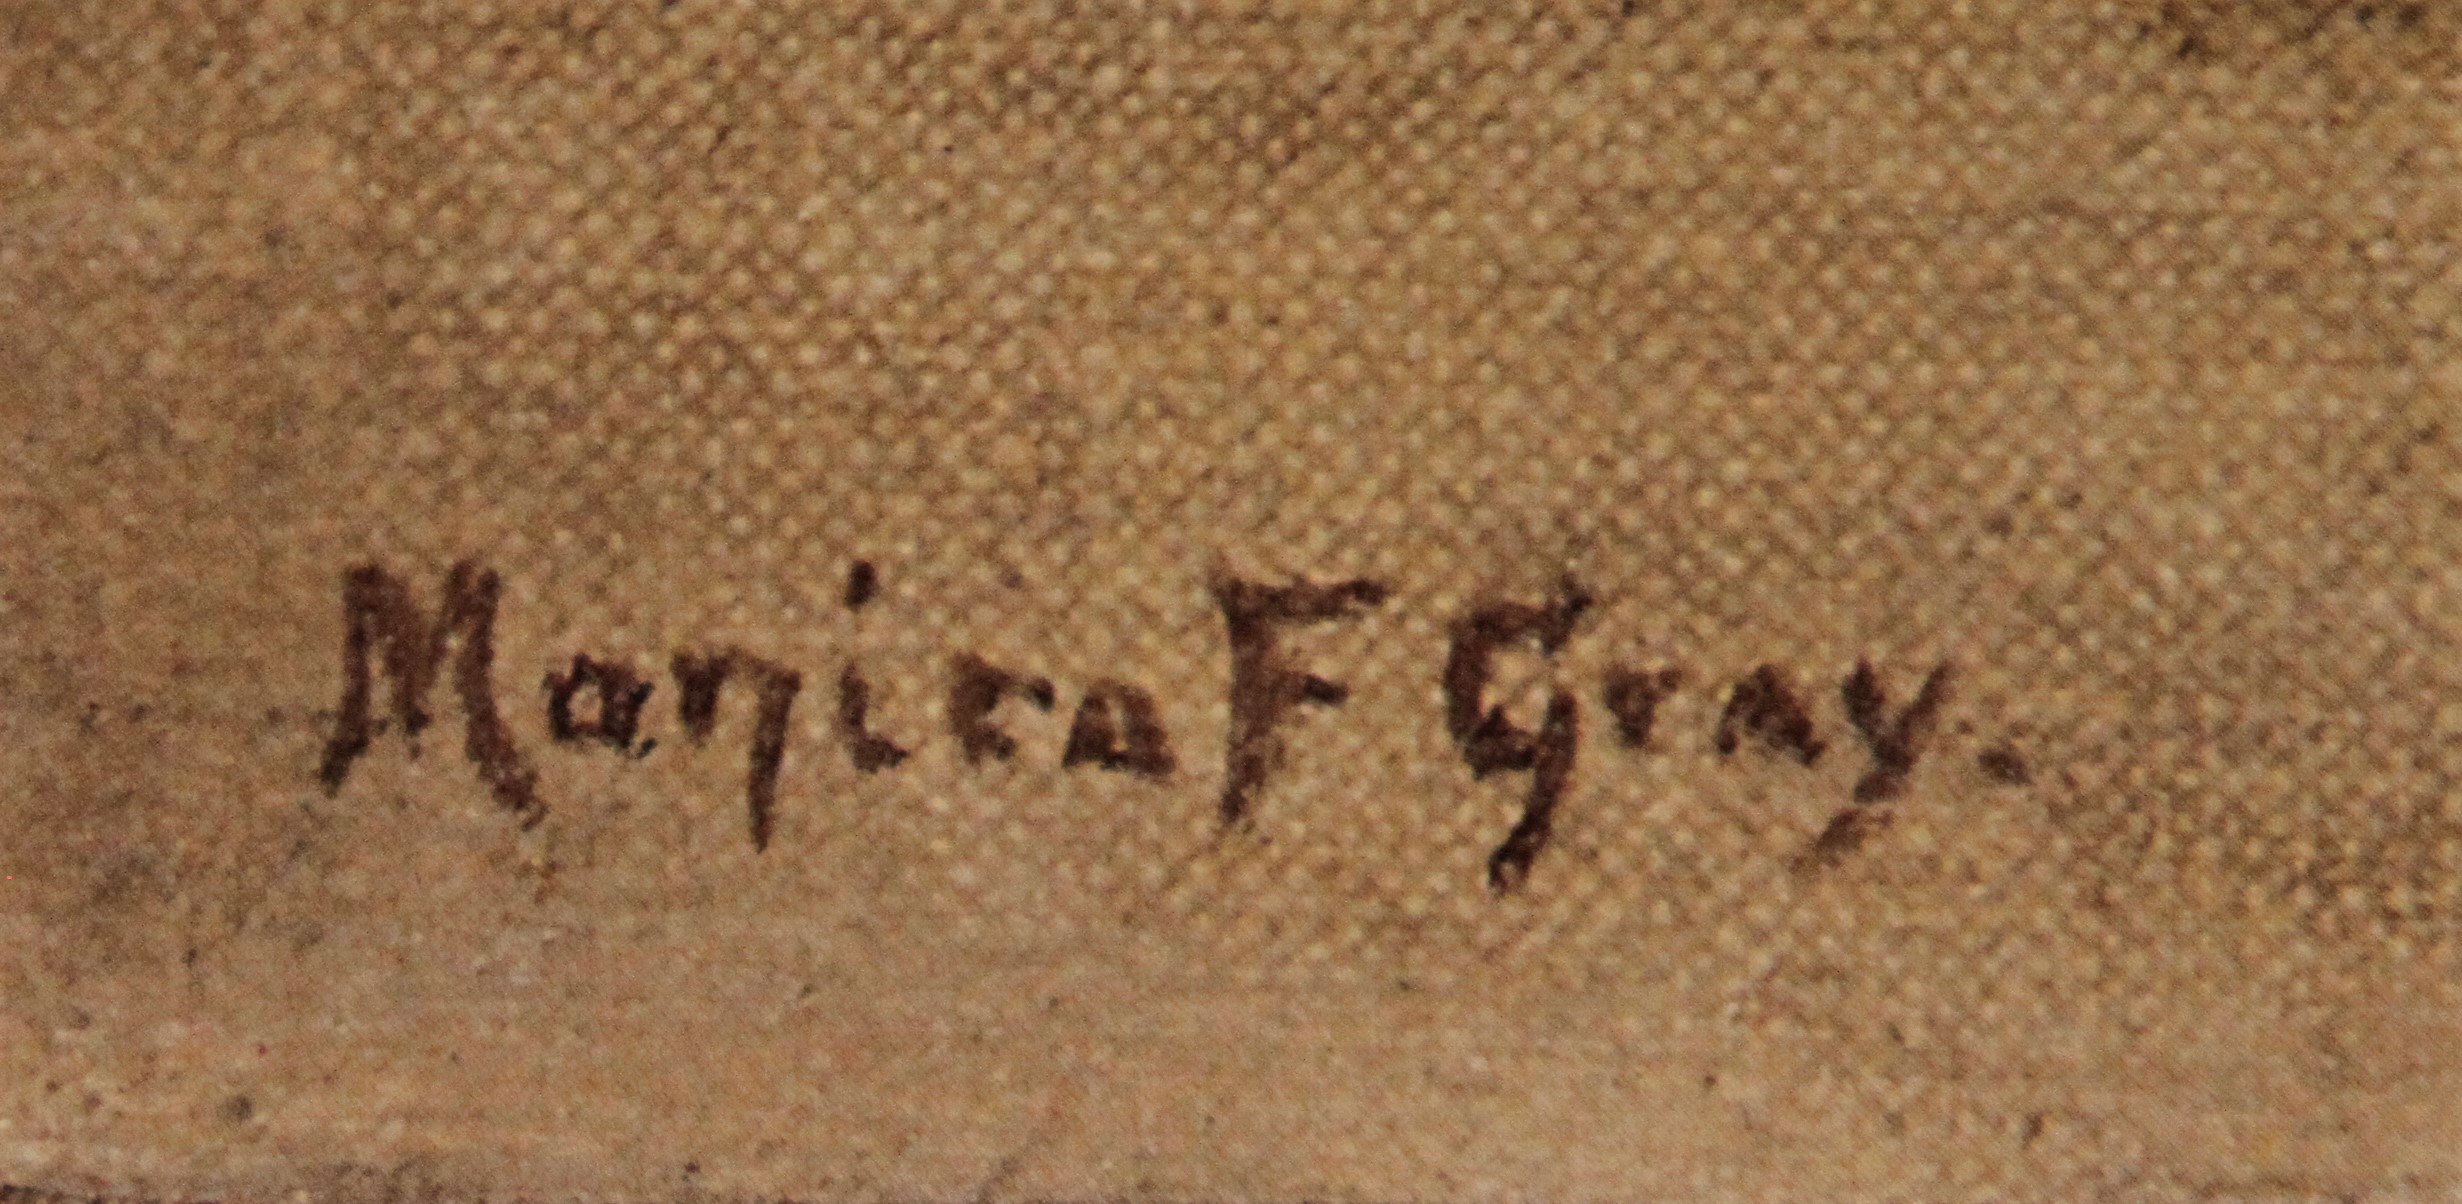 Monica F Gray.